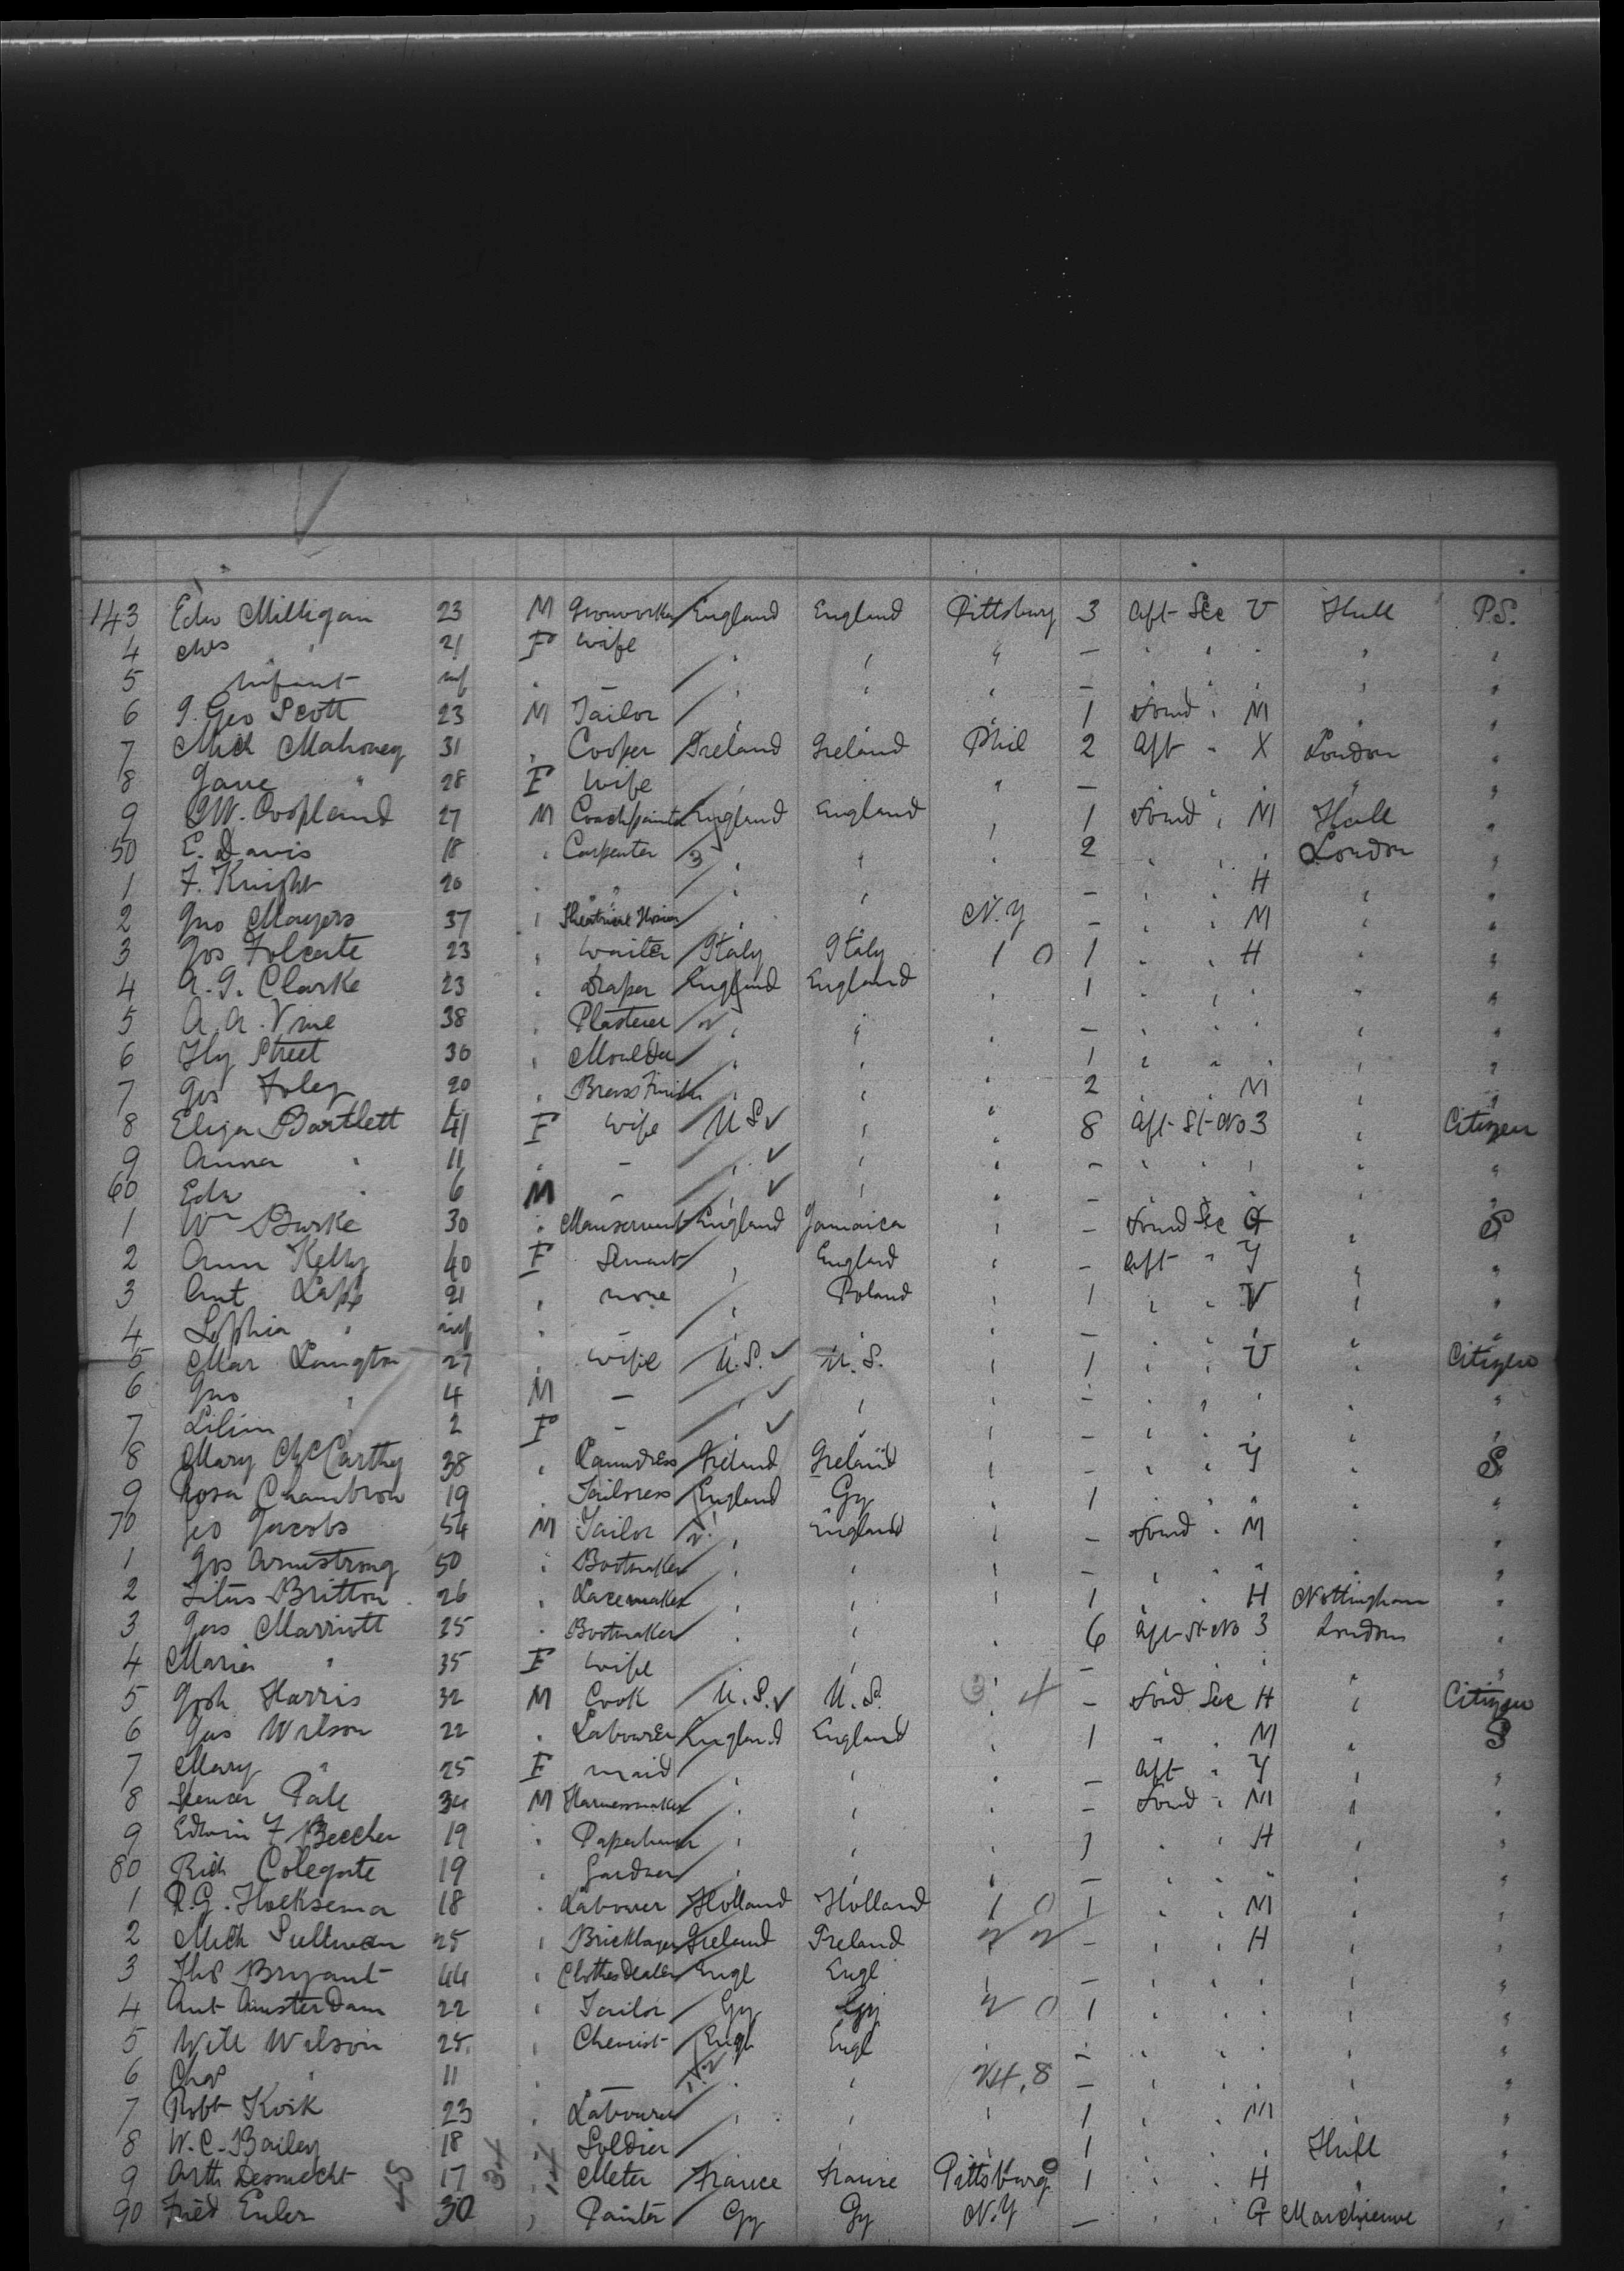 143 Edw Milligan 23 M Ironworker England England Pittsburg 3 Aft Sec U Hull P.S.
4 Mrs " 21 F Wife " " " — " " " " "
5 Infant inf " — " " " — " " " " "
6 J. Geo Scott 23 M Tailor " " " 1 Forwd " M " "
7 Mich Mahoney 31 " Cooper Ireland Ireland Phil 2 Aft " X London "
8 Jane " 28 F Wife " " " — " " " " "
9 G.W. Coopland 27 M Coachpainter England England " 1 Forwd " M Hull "
50 E. Davis 18 " Carpenter 3 " " " 2 " " " London "
1 F. Knight 20 " " " " " — " " H " "
2 Jno Mayers 37 " Theatrical " " N.Y — " " M " "
3 Jos Folcate 23 " Waiter Italy Italy 1 0 1 " " H " "
4 A.G. Clarke 23 " Draper England England " 1 " " " " "
5 A.A. Vine 38 " Plasterer 2 " " " — " " " " "
6 Hy Street 36 " Moulder " " " 1 " " " " "
7 Jos Foley 20 " Brass Finisher " " " 2 " " M " "
8 Eliza Bartlett 41 F Wife U S ✓ " " 8 Aft St No 3 " Citizen
9 Anna " 11 " — " ✓ " " — " " " " "
60 Edw " 6 M — " ✓ " " — " " " " "
1 Wm Burke 30 " Manservant England Jamaica " — Forwd Sec G " S
2 Ann Kelly 40 F Servant " England " — Aft " Y " "
3 Ant Lapp 21 " none " Poland " 1 " " V " "
4 Sophia " inf " — " " " — " " " " "
5 Mar Langton 27 " Wife U.S. ✓ U.S. " 1 " " U " Citizen
6 Jno " 4 M — " ✓ " " — " " " " "
7 Lilian " 2 F — " ✓ " " — " " " " "
8 Mary McCarthy 38 " Laundress Ireland Ireland " — " " Y " S
9 Rosa Chambron 19 " Tailoress England Gy " 1 " " " " "
70 Geo Jacobs 54 M Tailor 2 " England " — Forwd " M " "
1 Jos Armstrong 50 " Bootmaker " " " — " " " " "
2 Titus Britton 26 " Lacemaker " " " 1 " " H Nottingham "
3 Jas Marriott 25 " Bootmaker " " " 6 Aft St No 3 London "
4 Maria " 35 F Wife " " " — " " " " "
5 Josh Harris 32 M Cook U.S. ✓ U.S. " 4 — Forwd Sec H " Citizen
6 Jas Wilson 22 " Labourer England England " 1 " " M " S
7 Mary " 25 F maid " " " — Aft " Y " "
8 Spencer 34 M Harnessmaker " " " — Forwd " M " "
9 Edwin F Beecher 19 " " " " 1 " " H " "
80 Rich Colegate 19 " Gardner " " " — " " " " "
1 R.G. Hoeksema 18 " Labourer Holland Holland 1 0 1 " " M " "
2 Mich Sullivan 25 " Bricklayer Ireland Ireland 2 2 — " " H " "
3 Thos Bryant 44 " Clothes Dealer Engl Engl " — " " " " "
4 Ant Amsterdam 22 " Tailor Gy Gy 2 0 1 " " " " "
5 Will Wilson 25 " Chemist Engl Engl " — " " " " "
6 Chas " 11 " — 1.2 " " 24.8 — " " " " "
7 Robt Kvik 23 " Labourer " " " 1 " " M " "
8 W.C. Bailey 18 " Soldier " " " 1 " " " Hull "
9 Arth Desmecht 17 " Meter France France Pittsburg 1 " " H " "
90 Fred Euler 30 " Painter Gy Gy N.Y — " " G Marchienne "
48 34 14